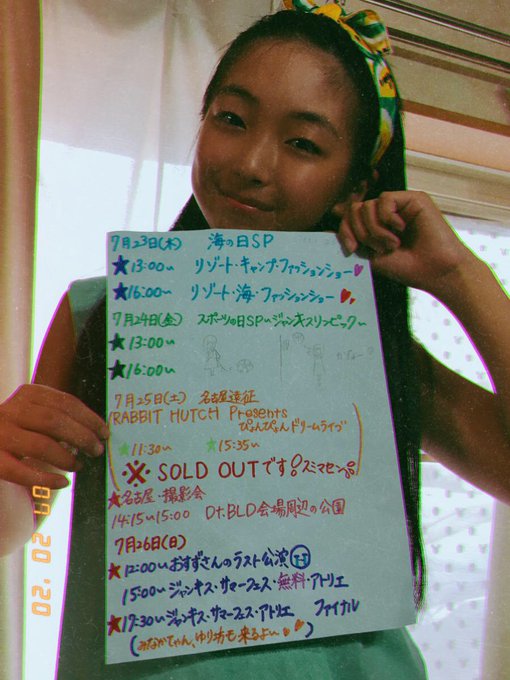 7月23日(木) 海の日SP
★13:00〜 リゾート・キャンプ・ファッションショー
★16:00〜 リゾート・海・ファッションショー
7月24日(金) スポーツの日SP〜ジャンキスリンピック〜
★13:00〜
★16:00〜
7月25日(土) 名古屋遠征
RABBIT HUTCH Presents
ぴょんぴょんドリームライブ
★11:30〜 ★15:35〜
※SOLD OUTです!スミマセン。
★名古屋・撮影会
14:15〜15:00 Dt.BLD会場周辺の公園
7月26日(日)
★12:00〜おすずさんのラスト公演
15:00〜ジャンキス・サマーフェス・無料・アトリエ
★17:30〜ジャンキス・サマーフェス・アトリエ ファイナル
(みなかてゃん、ゆり坊も来るよ〜)
07 20 '20